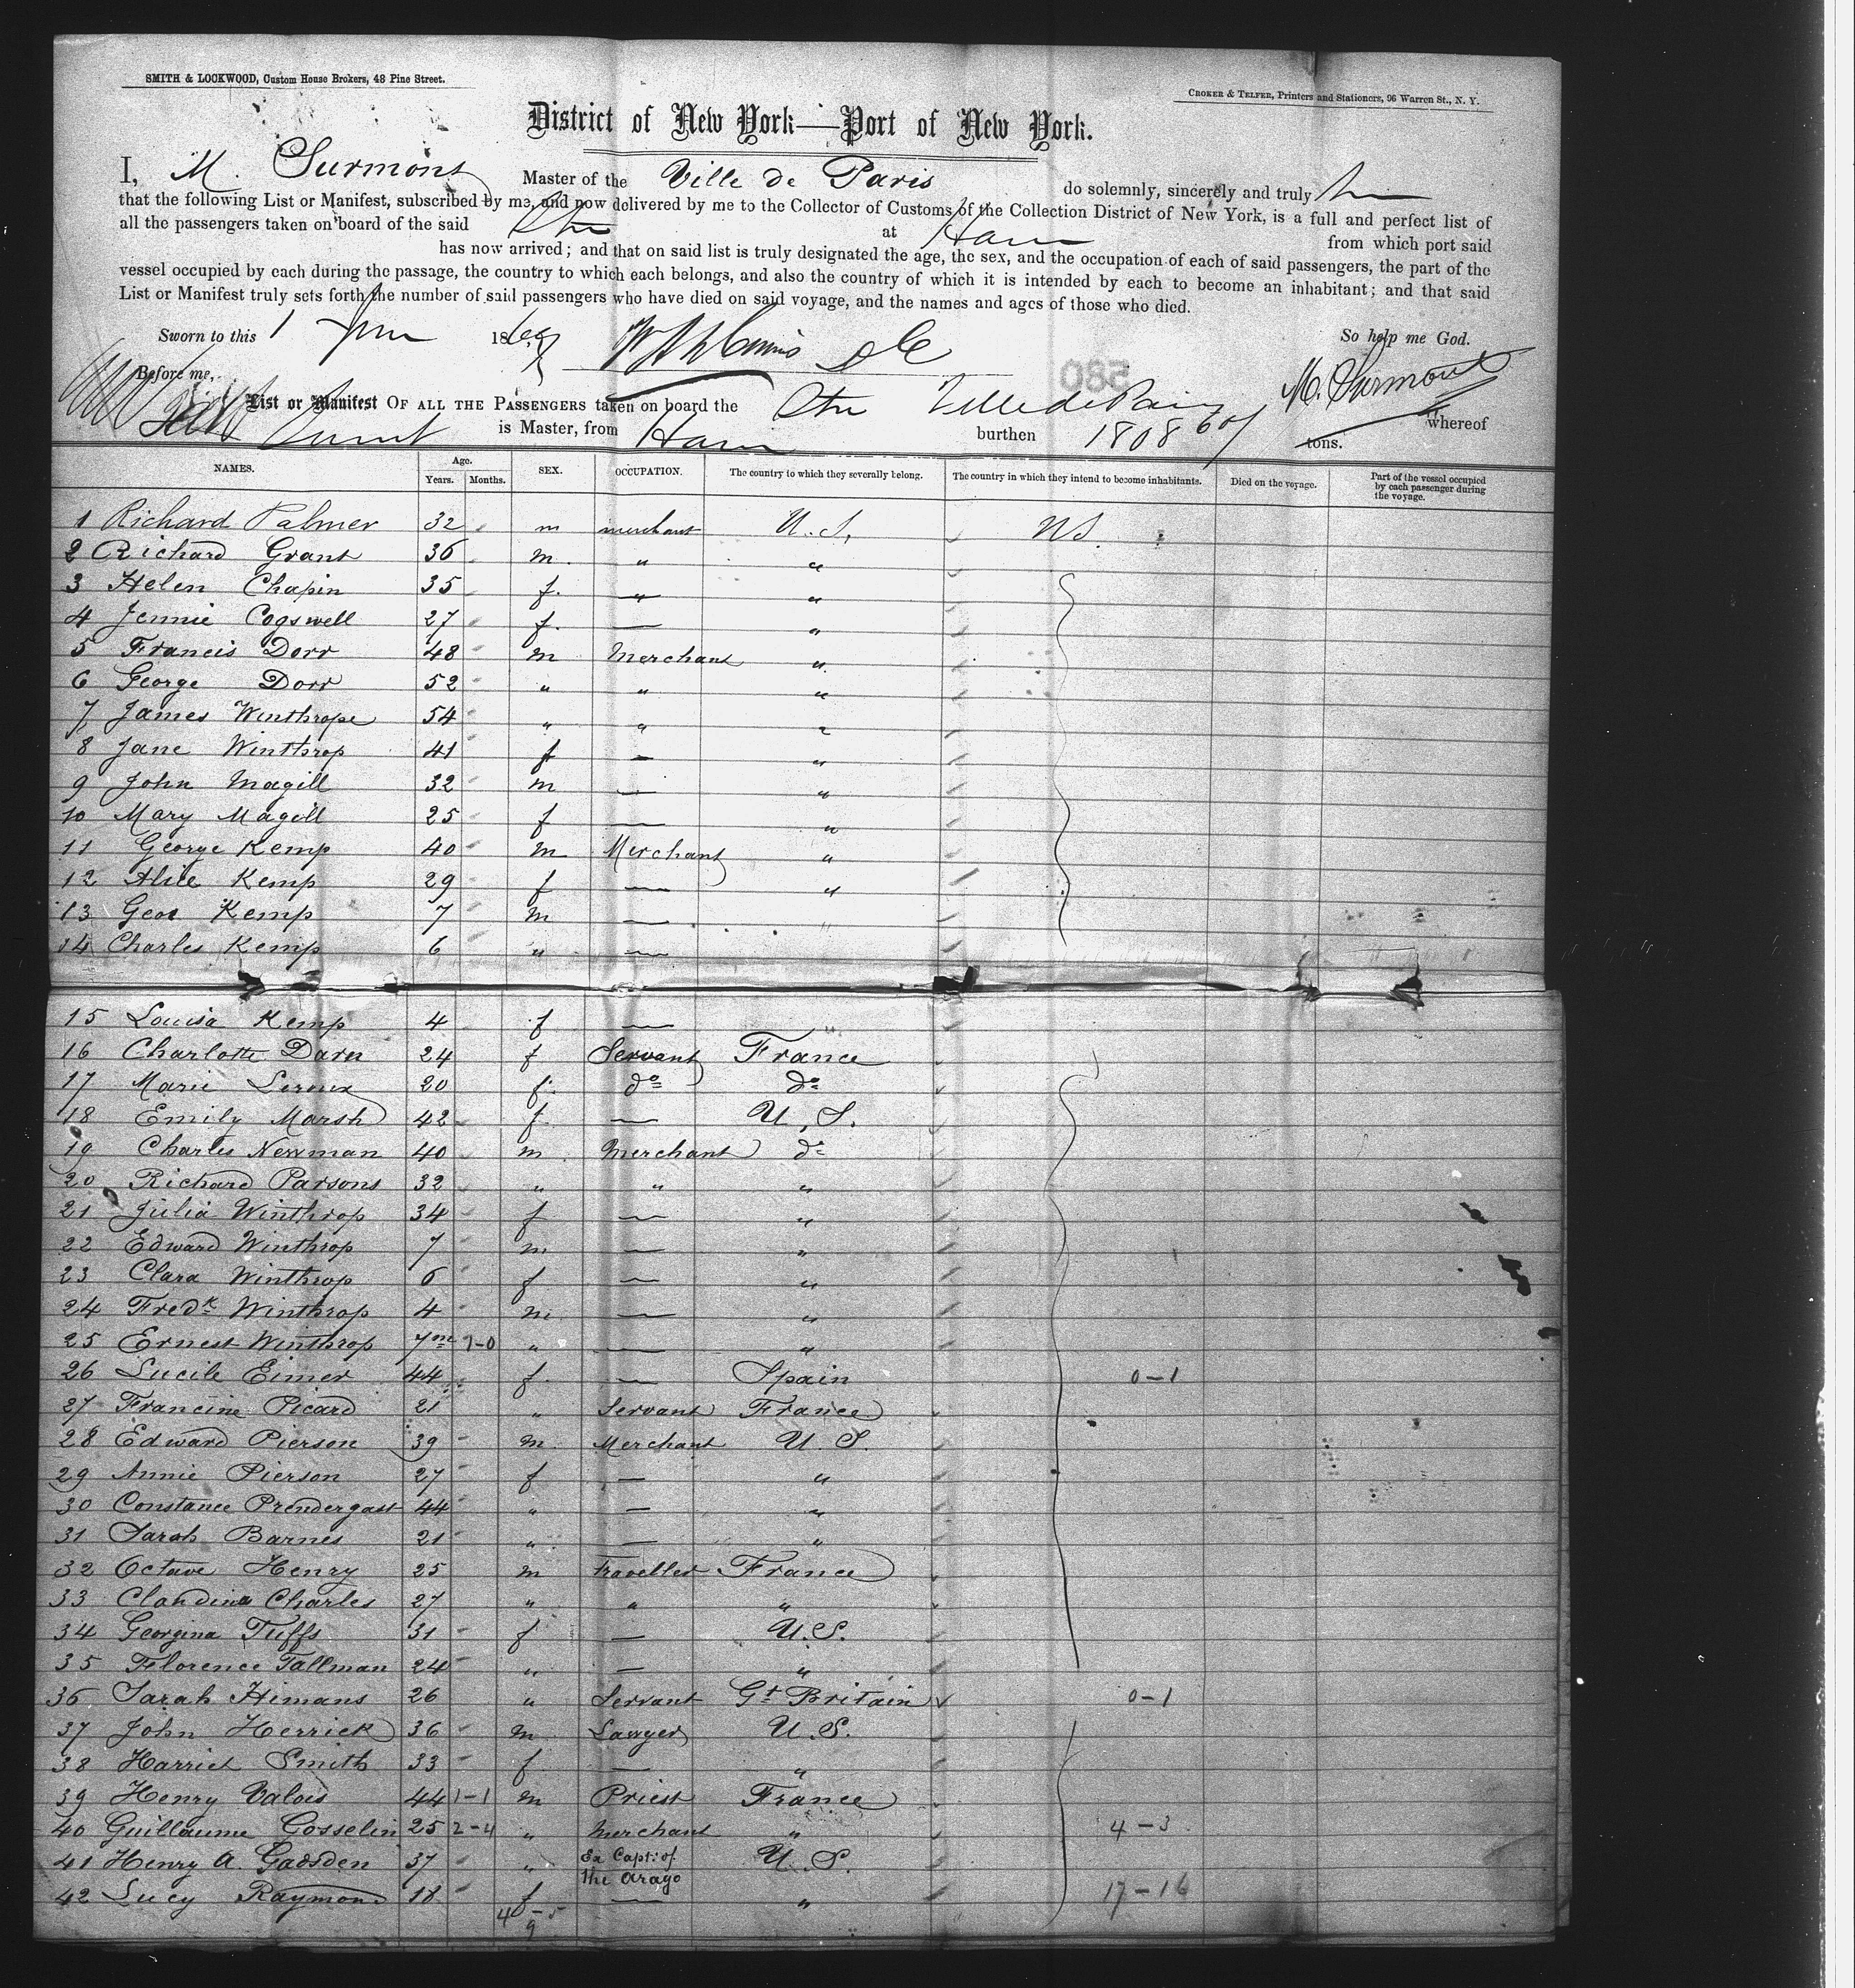 SMITH & LOCKWOOD, Custom House Brokers, 48 Pine Street.
CROKER & TELFER, Printers and Stationers, 96 Warren St., N. Y.
District of New York—Port of New York.
I, M. Surmont Master of the Ville de Paris do solemnly, sincerely and truly
that the following List or Manifest, subscribed by me, and now delivered by me to the Collector of Customs of the Collection District of New York, is a full and perfect list of
all the passengers taken on board of the said Str at Havre from which port said
has now arrived; and that on said list is truly designated the age, the sex, and the occupation of each of said passengers, the part of the
vessel occupied by each during the passage, the country to which each belongs, and also the country of which it is intended by each to become an inhabitant; and that said
List or Manifest truly sets forth the number of said passengers who have died on said voyage, and the names and ages of those who died.
Sworn to this 1 June 1869 So help me God.
Before me, M. Surmont
List or Manifest OF ALL THE PASSENGERS taken on board the Str Ville de Paris whereof
Surmont is Master, from Havre burthen 1808 60/ tons.
NAMES. Age. Years. Months. SEX. OCCUPATION. The country to which they severally belong. The country in which they intend to become inhabitants. Died on the voyage. Part of the vessel occupied by each passenger during the voyage.
1 Richard Palmer 32 m merchant U.S. US.
2 Richard Grant 36 m. " "
3 Helen Chapin 35 f. " "
4 Jennie Cogswell 27 f. — "
5 Francis Dorr 48 m Merchant "
6 George Dorr 52 " " "
7 James Winthrope 54 " " "
8 Jane Winthrop 41 f — "
9 John Magill 32 m — "
10 Mary Magill 25 f — "
11 George Kemp 40 m Merchant "
12 Alice Kemp 29 f — "
13 Geo Kemp 7 m — "
14 Charles Kemp 6 " —
15 Louisa Kemp 4 f — "
16 Charlotte Daren 24 f Servant France
17 Marie Leroux 20 f. do do
18 Emily Marsh 42 f — U.S.
19 Charles Newman 40 m. Merchant do
20 Richard Parsons 32 " " "
21 Julia Winthrop 34 f — "
22 Edward Winthrop 7 m. — "
23 Clara Winthrop 6 f — "
24 Fredk Winthrop 4 m. — "
25 Ernest Winthrop 7m 7-0 " — "
26 Lucile Eimer 44 f. — Spain 0-1
27 Francine Picard 21 " Servant France
28 Edward Pierson 39 m. Merchant U.S.
29 Annie Pierson 27 f — "
30 Constance Prendergast 44 " — "
31 Sarah Barnes 21 " — "
32 Octave Henry 25 m traveller France
33 Claudina Charles 27 " " "
34 Georgina Tuffs 31 f — U.S.
35 Florence Tallman 24 " — "
36 Sarah Himans 26 " Servant Gt Britain 0-1
37 John Herrick 36 m Lawyer U.S.
38 Harriet Smith 33 f — "
39 Henry Valois 44 1-1 m Priest France
40 Guillaume Gosselin 25 2-4 " Merchant " 4-3
41 Henry A. Gadsden 37 " Ex Capt: of the Arago U.S.
42 Lucy Raymond 18 f — " 17-16
4-5
9